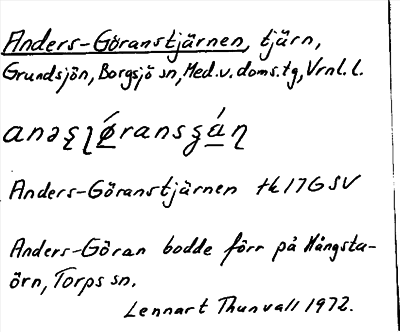 Anders-Göranstjärnen, tjärn,
Grundsjön, Borgsjö sn, Med.v.doms.tg, Vrnl.l.
Anders-Göranstjärnen tk 17G SV
Anders-Göran bodde förr på Hångsta-
örn, Torps sn.
Lennart Thunvall 1972.